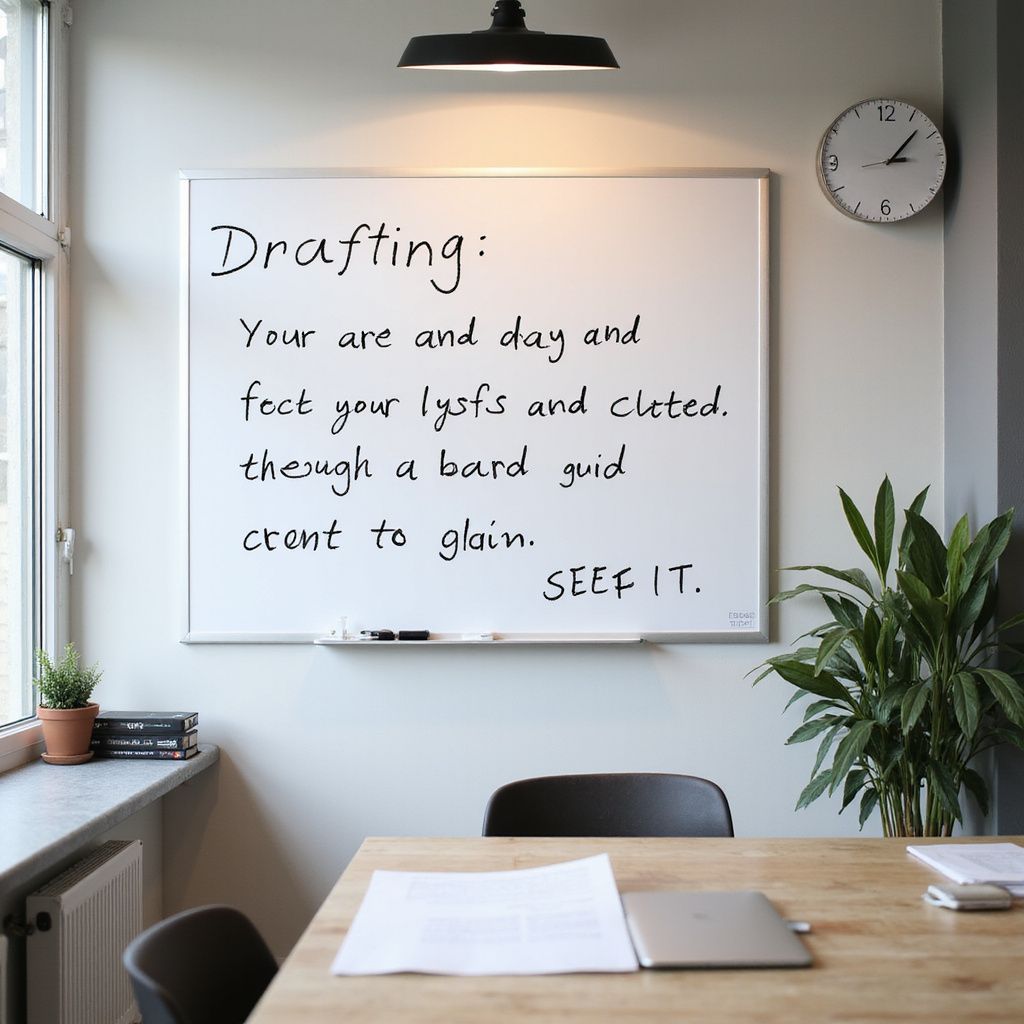 12
9
6
Drafting:
Your are and day and
foct your lysfs and cltted.
theough a bard guid
cront to glain.
SEEF IT.